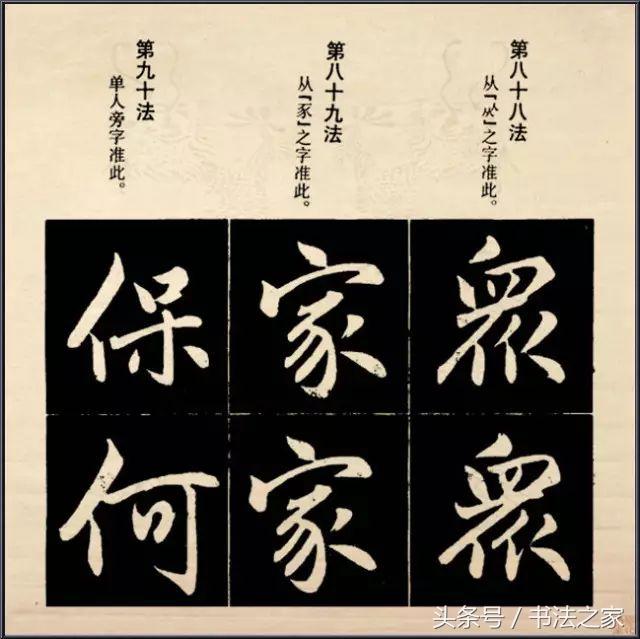 第八十八法
从「𠈌」之字准此。
第八十九法
从「豕」之字准此。
第九十法
单人旁字准此。
眾
眾
家
家
保
何
头条号 / 书法之家